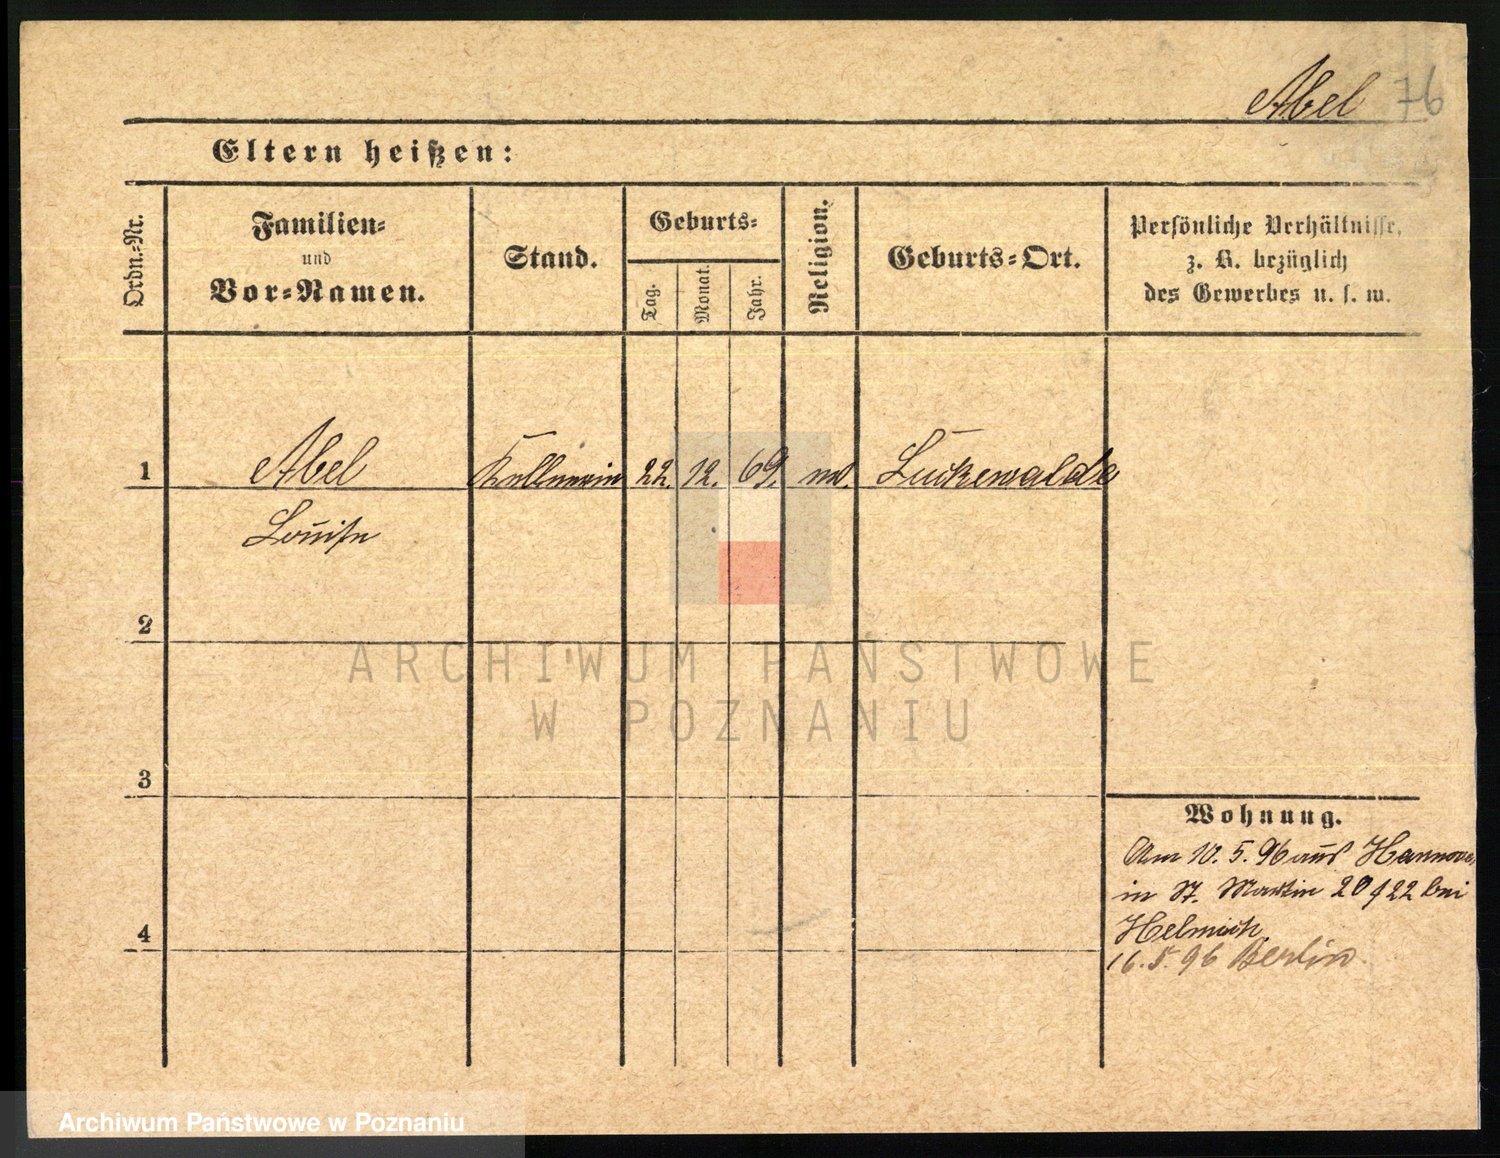 Abel 76
Eltern heißen:
Ordn.-Nr.
Familien-
und
Vor-Namen.
Stand.
Geburts-
Tag.
Monat.
Jahr.
Religion.
Geburts-Ort.
Persönliche Verhältnisse,
z. B. bezüglich
des Gewerbes u. s. w.
1 Abel Kellnerin 22. 12. 69. ev. Luckewalde
Louise
2
3
4
Wohnung.
Am 10. 5. 96 aus Hannover
in St. Martin 20/22 bei
16. 5. 96 Berlin
ARCHIWUM PAŃSTWOWE
W POZNANIU
Archiwum Państwowe w Poznaniu